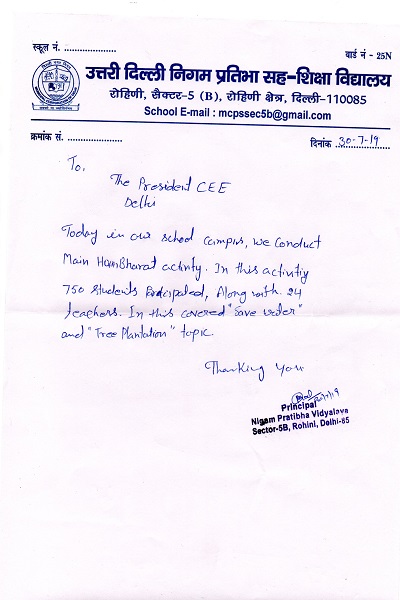 स्कूल नं. ....................
वार्ड नं - 25N
उत्तरी दिल्ली निगम प्रतिभा सह-शिक्षा विद्यालय
रोहिणी, सैक्टर-5 (B), रोहिणी क्षेत्र, दिल्ली-110085
School E-mail : mcpssec5b@gmail.com
क्रमांक सं. .....................
दिनांक 30-7-19
To,
The President CEE
Delhi
Today in our school campus, we conduct
Main HoonBharat activity. In this activity
750 students Participated, Along with 24
teachers. In this covered "Save water"
and "Tree Plantation" topic.
Thanking You
30/7/19
Principal
Nigam Pratibha Vidyalaya
Sector-5B, Rohini, Delhi-85